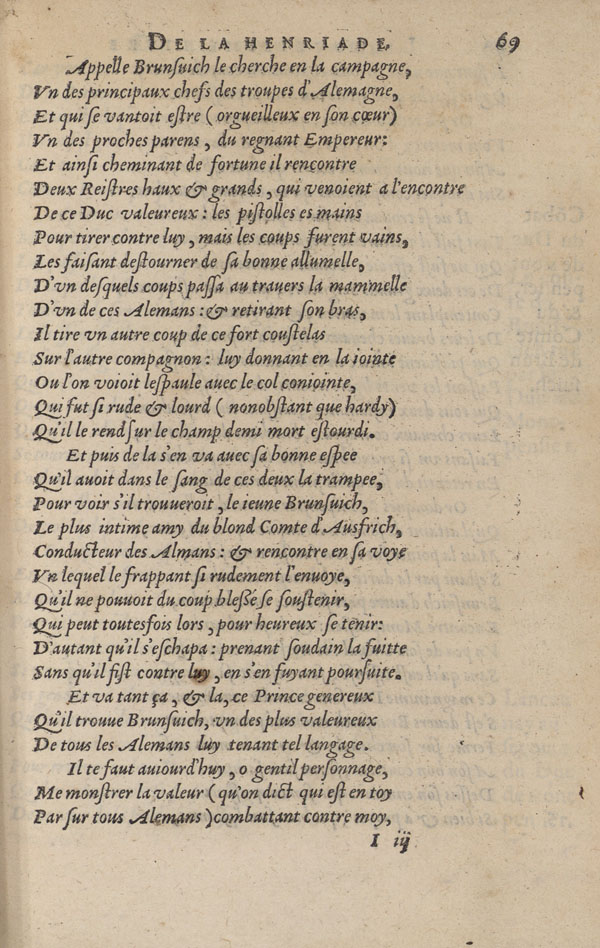 DE LA HENRIADE, 69
Appelle Brunſuich le cherche en la campagne,
Vn des principaux chefs des troupes d'Alemagne,
Et qui se vantoit eſtre ( orgueilleux en ſon cœur)
Vn des proches parens , du regnant Empereur:
Et ainſi cheminant de fortune il rencontre
Deux Reiſtres haux & grands , qui venoient a l'encontre
De ce Duc valeureux : les piſtolles es mains
Pour tirer contre luy , mais les coups furent vains,
Les faiſant deſtourner de ſa bonne allumelle,
D'vn deſquels coups paſſa au trauers la mammelle
D'vn de ces Alemans : & retirant ſon bras,
Il tire vn autre coup de ce fort couſtelas
Sur l'autre compagnon : luy donnant en la iointe
Ou l'on voioit leſpaule auec le col coniointe,
Qui fut ſi rude & lourd ( nonobſtant que hardy)
Qu'il le rend ſur le champ demi mort eſtourdi.
Et puis de la s'en va auec ſa bonne eſpee
Qu'il auoit dans le ſang de ces deux la trampee,
Pour voir s'il trouueroit , le ieune Brunſuich,
Le plus intime amy du blond Comte d'Ausfrich,
Conducteur des Almans : & rencontre en ſa voye
Vn lequel le frappant ſi rudement l'enuoye,
Qu'il ne pouuoit du coup bleſſé ſe ſouſtenir,
Qui peut toutesfois lors , pour heureux ſe tenir:
D'autant qu'il s'eſchapa : prenant ſoudain la fuitte
Sans qu'il fiſt contre luy , en s'en fuyant pourſuite.
Et va tant ça , & la, ce Prince genereux
Qu'il trouue Brunſuich, vn des plus valeureux
De tous les Alemans luy tenant tel langage.
Il te faut auiourd'huy , o gentil perſonnage,
Me monſtrer la valeur ( qu'on dict qui eſt en toy
Par ſur tous Alemans ) combattant contre moy,
I iij